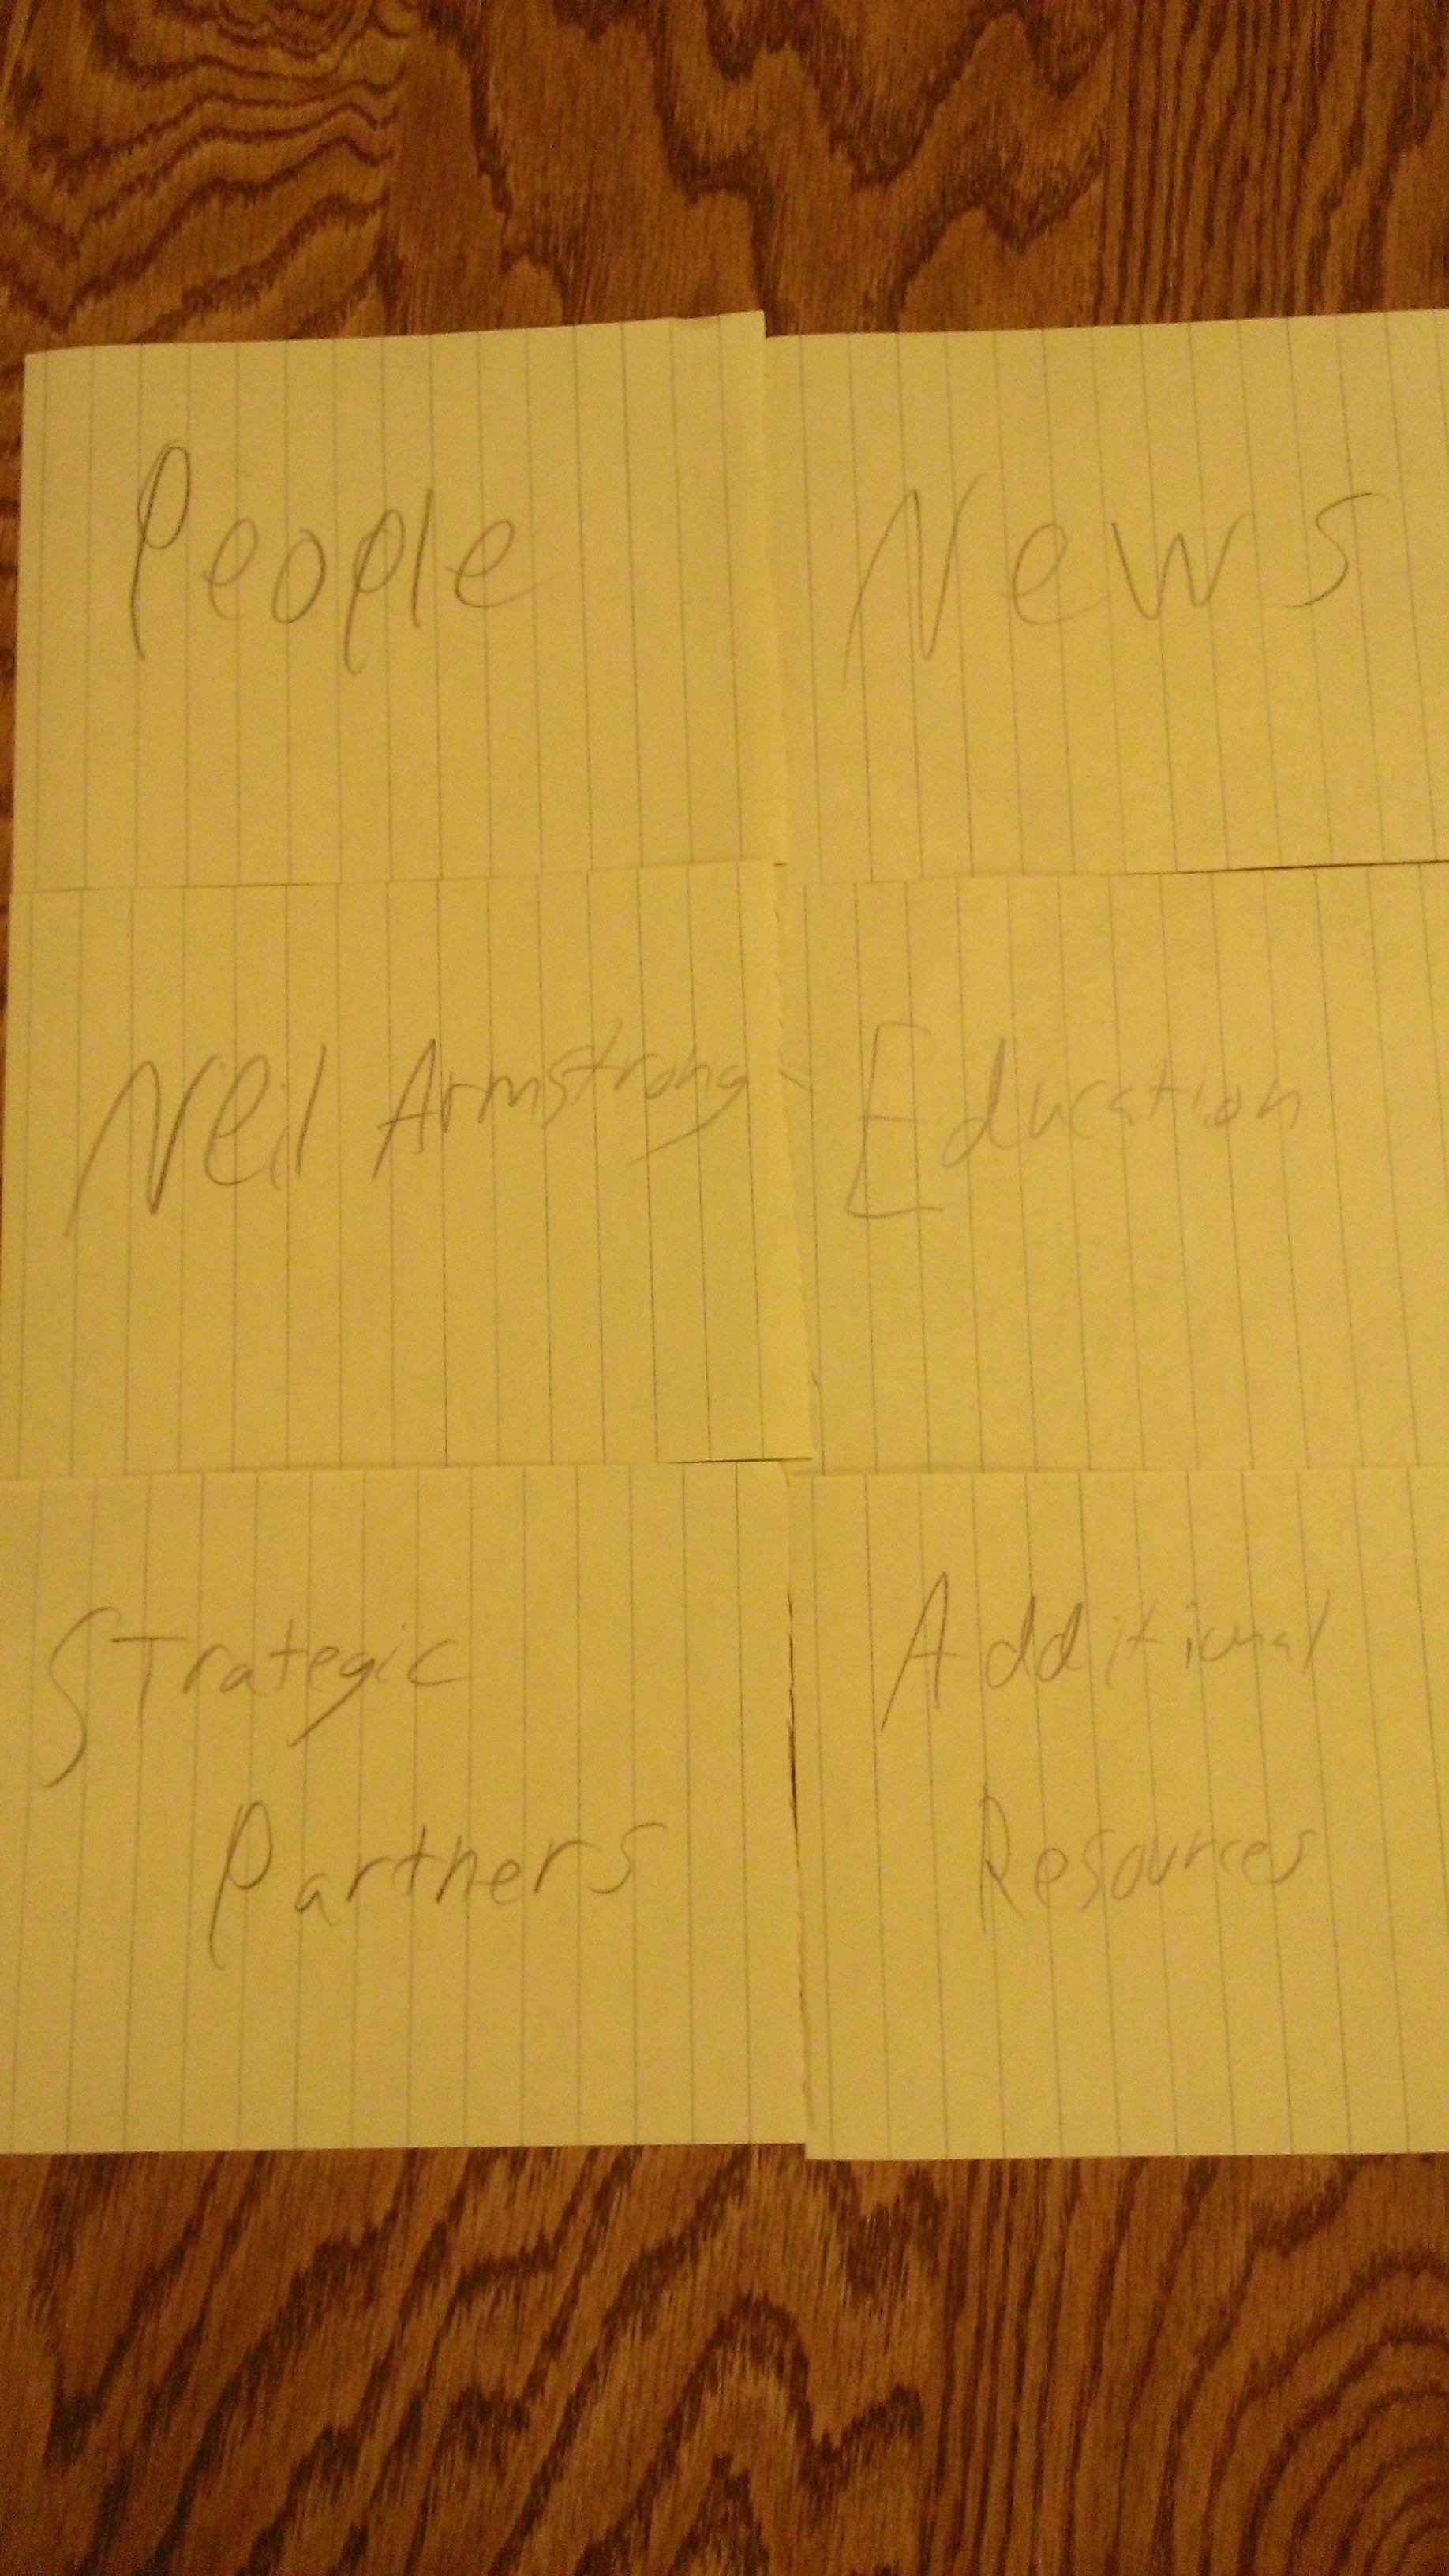 People
News
Neil Armstrong
Education
Strategic
Partners
Additional
Resources